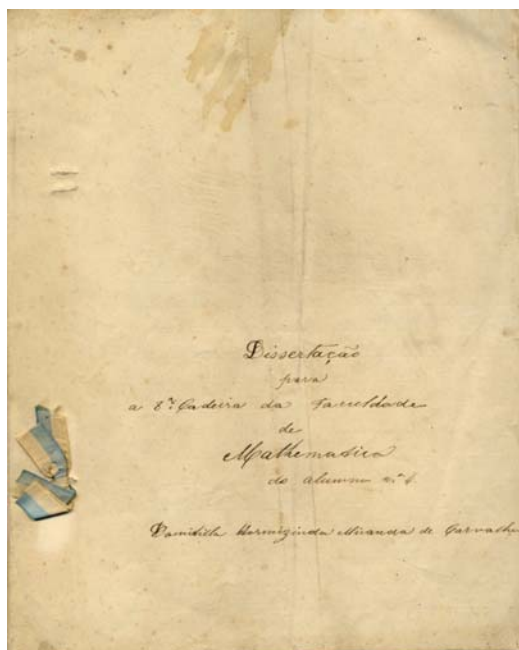 Dissertação
para
a 8ª Cadeira da Faculdade
de
Mathematica
do alumno nº 1.
Domitilla Hormizinda Miranda de Carvalho